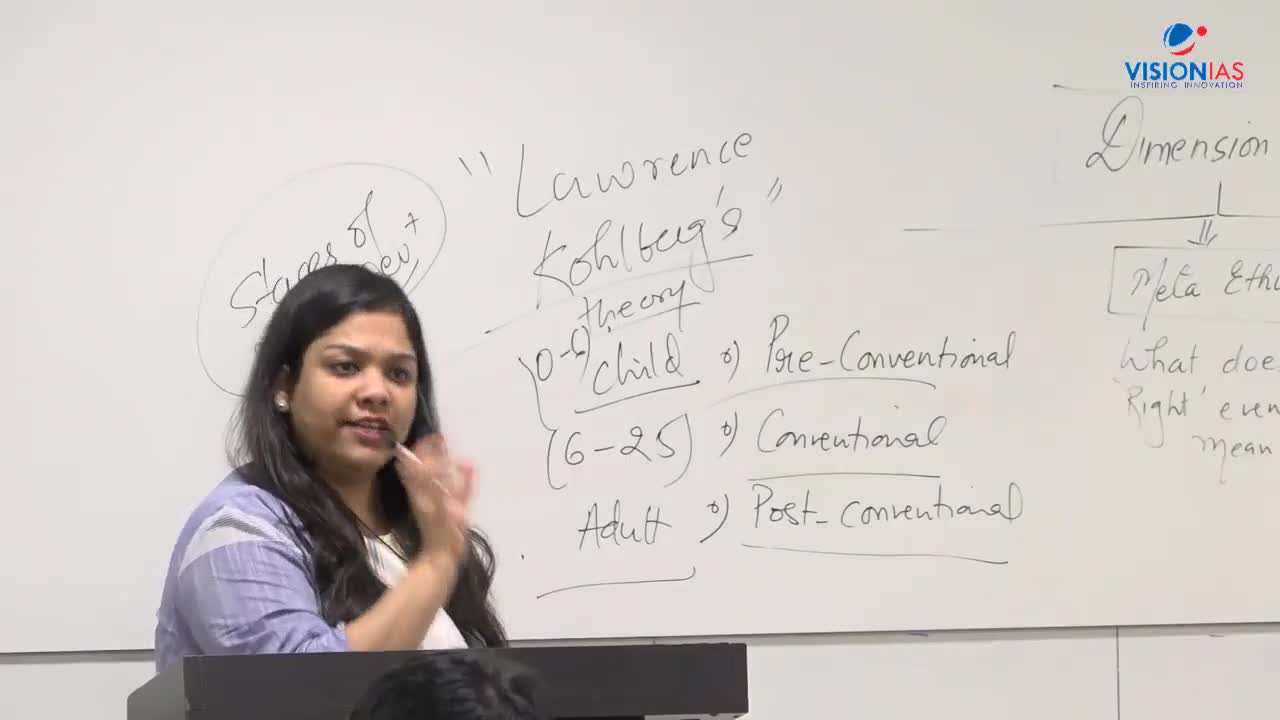 VISIONIAS
INSPIRING INNOVATION
Stages of
"Lawrence
Kohlberg's"
theory
(0-6) child Pre-Conventional
(6-25) Conventional
Adult Post-conventional
Dimension
Meta
What
'Right'
mean